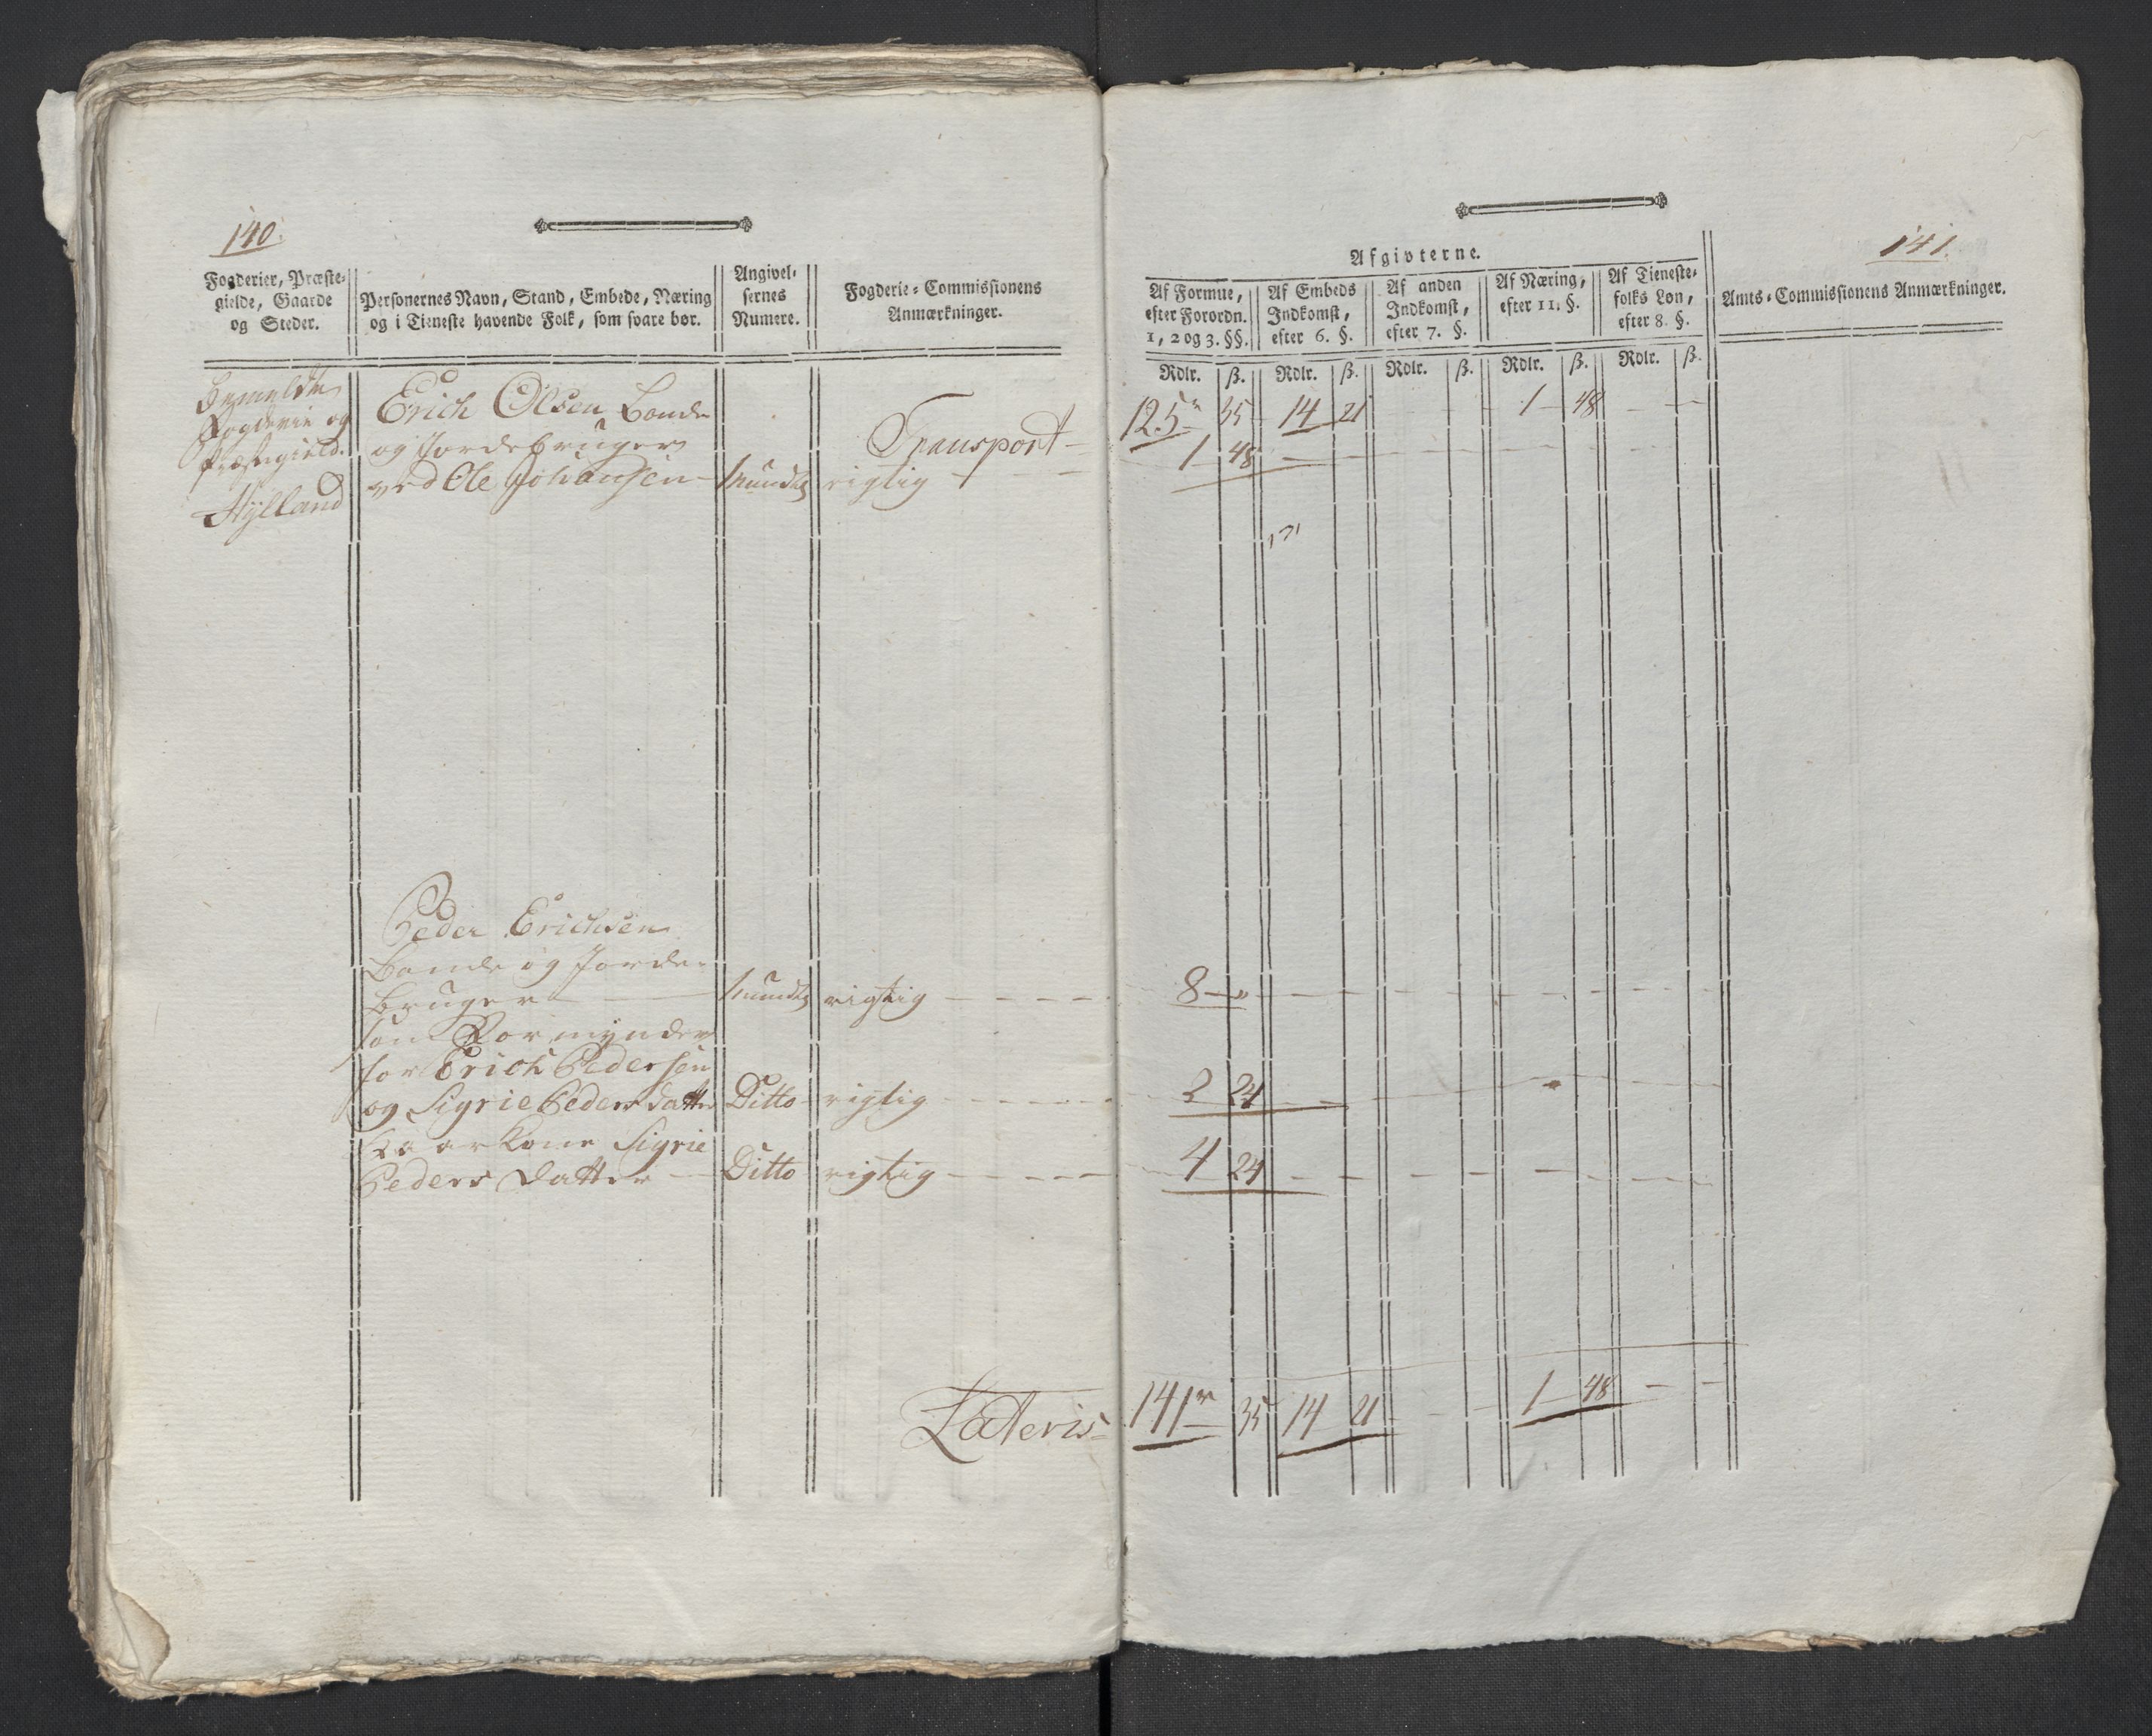 140.
Fogderier, Præste-
gielde, Gaarde
og Steder.
Personernes Navn, Stand, Embede, Næring
og i Tieneste havende Folk, som svare bør.
Angivel-
sernes
Numere.
Fogderie-Commissionens
Anmærkninger.
Bemeldte
Fogderie og
Præstegield.
Hylland
Erich Olsen Bonde
og Jordebruger
ved Ole Johansen - mundtlig rigtig
Transport -
Peder Erichsen
Bonde og Jorde-
bruger - mundtlig rigtig
som Formynder
for Erich Pedersen
og Sigrie Peders datter Ditto rigtig
Kaarkone Sigrie
Peders datter Ditto rigtig
Lateris
141.
Afgivterne.
Af Formue,
efter Forordn.
1, 2 og 3. §§.
Af Embeds
Indkomst,
efter 6. §.
Af anden
Indkomst,
efter 7. §.
Af Næring,
efter 11. §.
Af Tieneste-
folks Løn,
efter 8. §.
Amts-Commissionens Anmærkninger.
Rdlr. ß. Rdlr. ß. Rdlr. ß. Rdlr. ß. Rdlr. ß.
125 35 14 21 - - 1 48 - -
1 48
8 - "
2 24
4 24
141 35 14 21 - - 1 48 - -